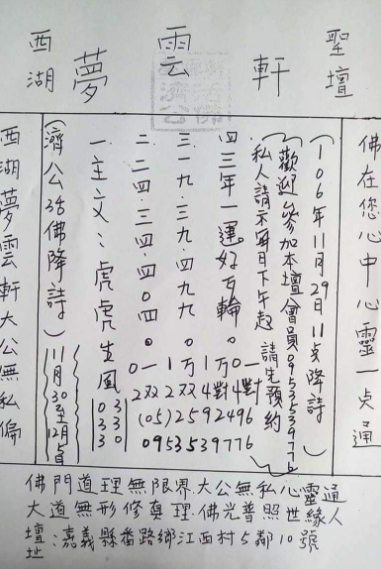 西湖 夢 雲 軒 聖壇
佛在您心中心靈一点通
(106年11月29日11点降詩)
(歡迎參加本壇會員0953539776
私人請示每日下午起 請先預約)
四三年一運好互輪。
三一九.三九.四九九
二二四.三四.四0四。
一主文:虎虎生風
(濟公活佛降詩)
11月30至12月5日
(05)2592496
0953539776
西湖夢雲軒大公無私偏
佛門道理無限界大公無私心靈通
大道無形修真理.佛光普照世緣人
壇址:嘉義縣番路鄉江西村5鄰10號